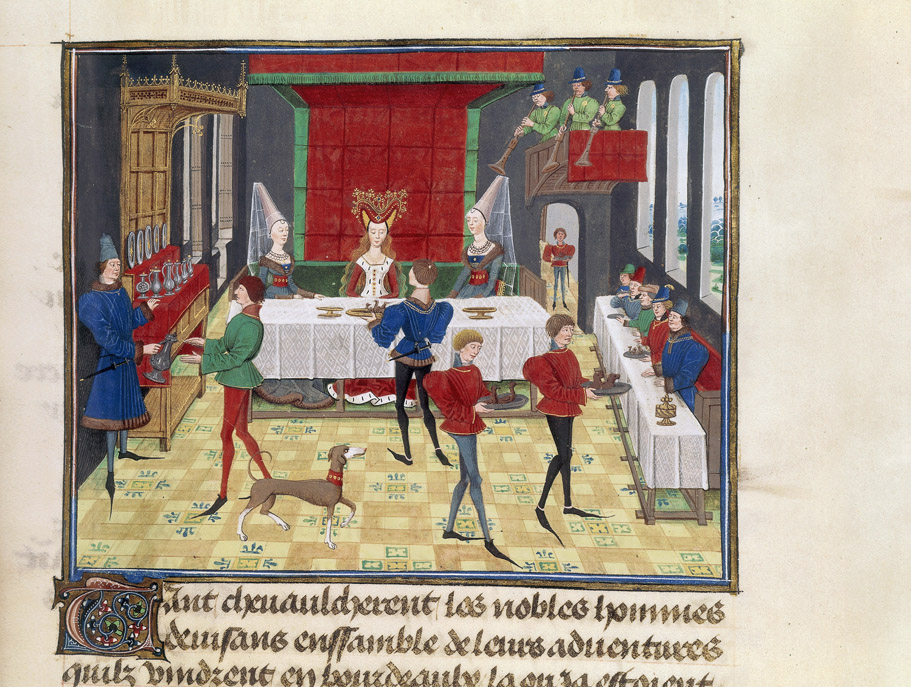 Tant cheuaulcherent les nobles hommes
deuisans enssamble de leurs aduentures
quilz vindrent en bourdeaulx la ou ia estoient